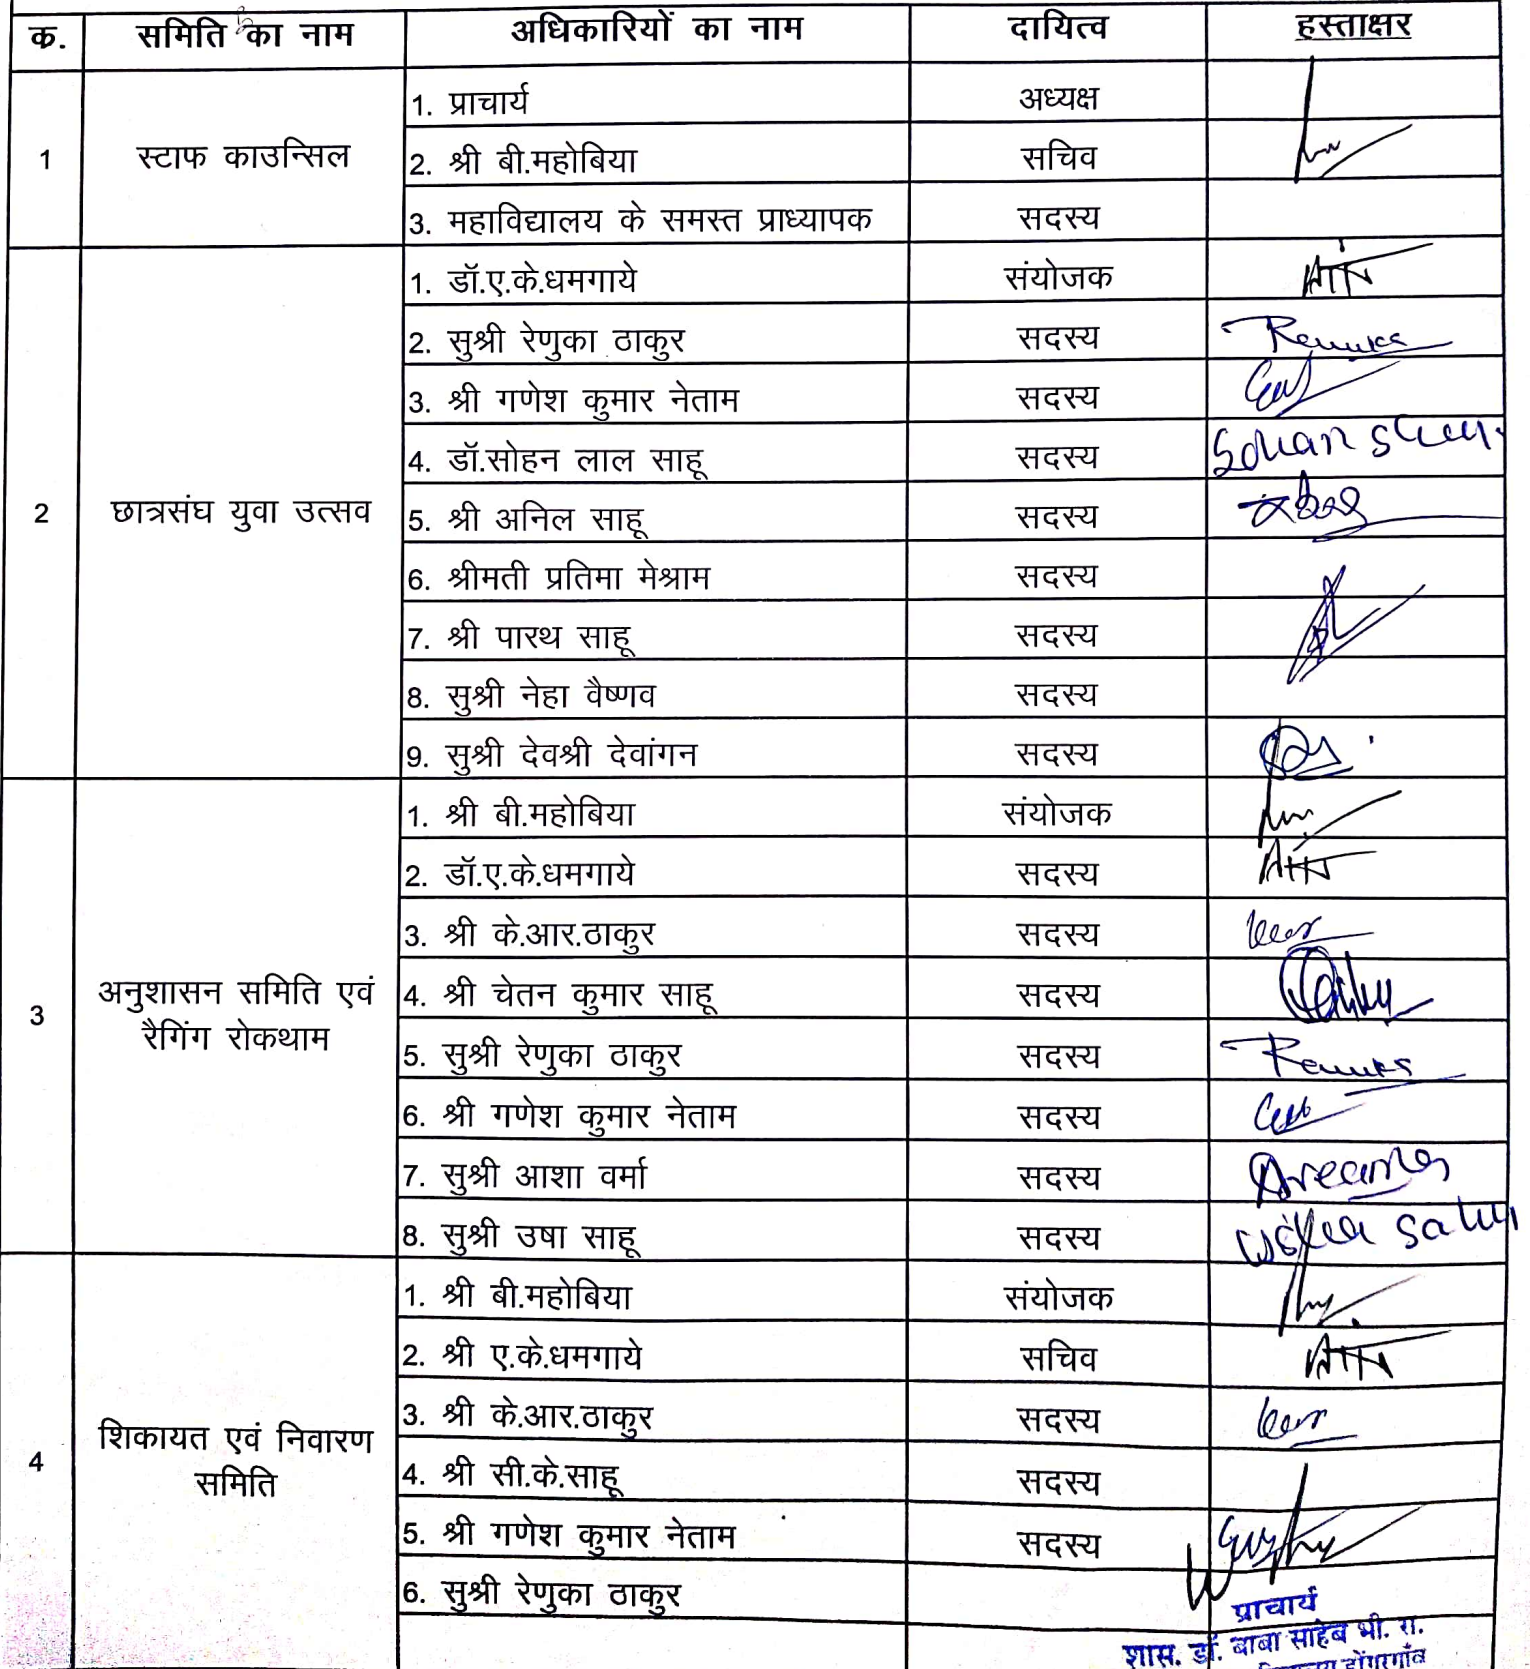 क. समिति का नाम अधिकारियों का नाम दायित्व हस्ताक्षर
1 स्टाफ काउन्सिल
1. प्राचार्य अध्यक्ष
2. श्री बी.महोबिया सचिव
3. महाविद्यालय के समस्त प्राध्यापक सदस्य
2 छात्रसंघ युवा उत्सव
1. डॉ.ए.के.धमगाये संयोजक
2. सुश्री रेणुका ठाकुर सदस्य Renuka
3. श्री गणेश कुमार नेताम सदस्य
4. डॉ.सोहन लाल साहू सदस्य
5. श्री अनिल साहू सदस्य
6. श्रीमती प्रतिमा मेश्राम सदस्य
7. श्री पारथ साहू सदस्य
8. सुश्री नेहा वैष्णव सदस्य
9. सुश्री देवश्री देवांगन सदस्य
3 अनुशासन समिति एवं
रैगिंग रोकथाम
1. श्री बी.महोबिया संयोजक
2. डॉ.ए.के.धमगाये सदस्य
3. श्री के.आर.ठाकुर सदस्य
4. श्री चेतन कुमार साहू सदस्य
5. सुश्री रेणुका ठाकुर सदस्य Renuka
6. श्री गणेश कुमार नेताम सदस्य
7. सुश्री आशा वर्मा सदस्य
8. सुश्री उषा साहू सदस्य
4 शिकायत एवं निवारण
समिति
1. श्री बी.महोबिया संयोजक
2. श्री ए.के.धमगाये सचिव
3. श्री के.आर.ठाकुर सदस्य
4. श्री सी.के.साहू सदस्य
5. श्री गणेश कुमार नेताम सदस्य
6. सुश्री रेणुका ठाकुर
प्राचार्य
शास. डॉ. बाबा साहेब भी. रा.
डोंगरगाँव